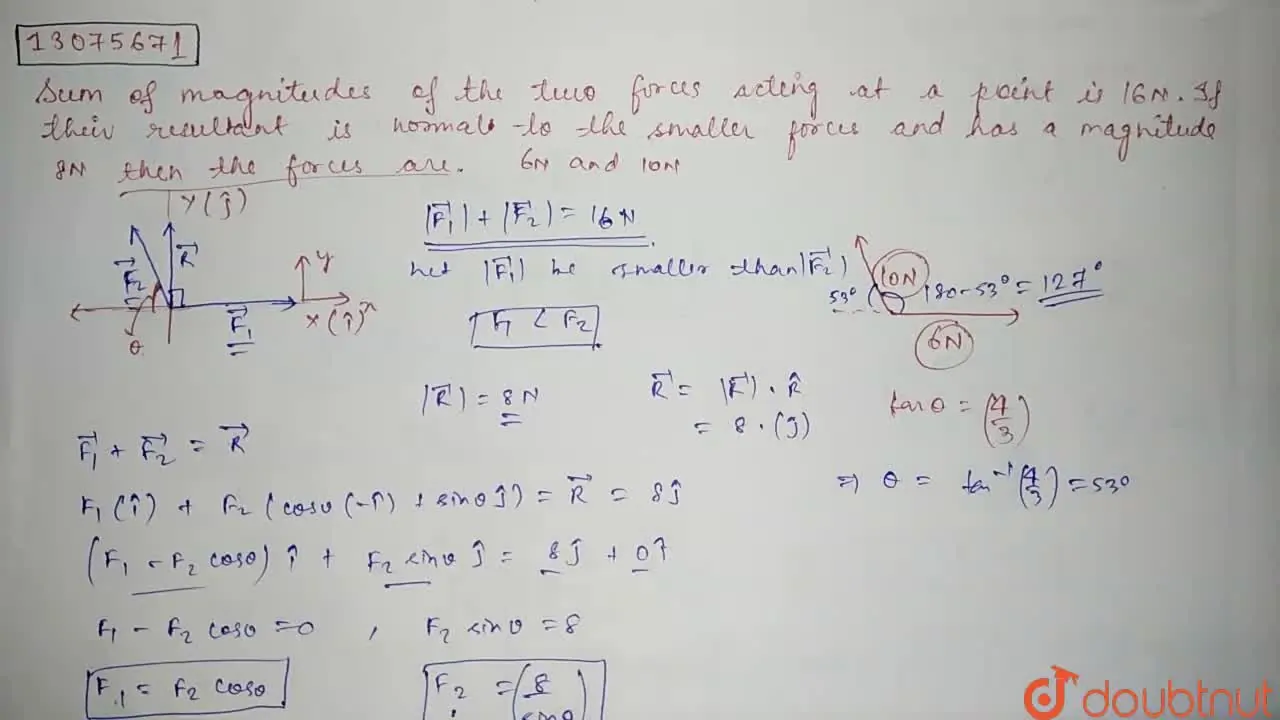 13075671
Sum of magnitudes of the two forces acting at a point is 16N. If
their resultant is normal to the smaller forces and has a magnitude
8N then the forces are. 6N and 10N
Y(ĵ)
R⃗
F⃗₂
θ
F⃗₁
y
X(î)
|F⃗₁| + |F⃗₂| = 16N
Let |F⃗₁| be smaller than |F⃗₂|
F₁ < F₂
|R⃗| = 8N
R⃗ = |R⃗| · R̂
= 8 · (ĵ)
10N
53°
180-53° = 127°
6N
tanθ = (4/3)
⇒ θ = tan⁻¹(4/3) = 53°
F⃗₁ + F⃗₂ = R⃗
F₁(î) + F₂(cosθ(-î) + sinθĵ) = R⃗ = 8ĵ
(F₁ - F₂ cosθ) î + F₂ sinθ ĵ = 8ĵ + 0î
F₁ - F₂ cosθ = 0 , F₂ sinθ = 8
F₁ = F₂ cosθ
F₂ = (8/sinθ)
doubtnut